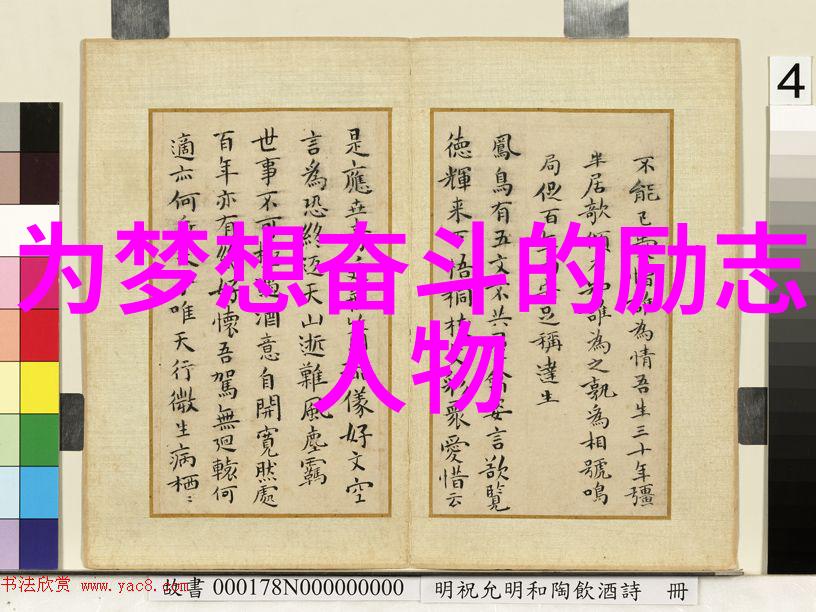 为梦想奋斗的励志
人物
4
不能已 為情吾生三十年彊
半居欹傾 誰為之孰為相號鳴
局促百年 足稱達生
鳳鳥有五文不共 言欲覽
德輝來 悟桐枝 衆愛惜云
是應 儀好文空
言為恐終返天山逝難風塵羈
世事不可 酒意自開寬然處
百年亦有 好懷吾駕無迴轅何
適亦何 唯天行微生病栖〻
书法欣赏 www.yac8.com
故書 000178N000000000
明祝允明和陶飲酒詩 冊